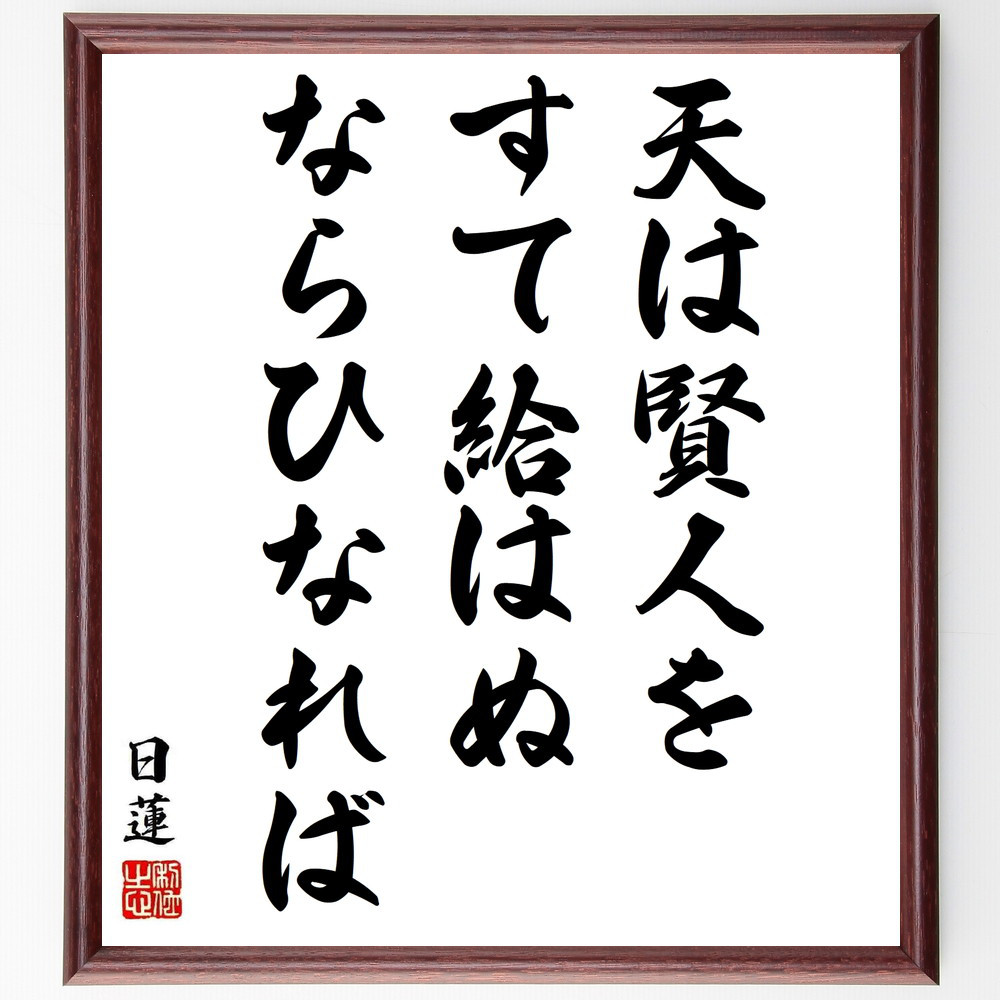 天は賢人を
すて給はぬ
ならひなれば
日蓮